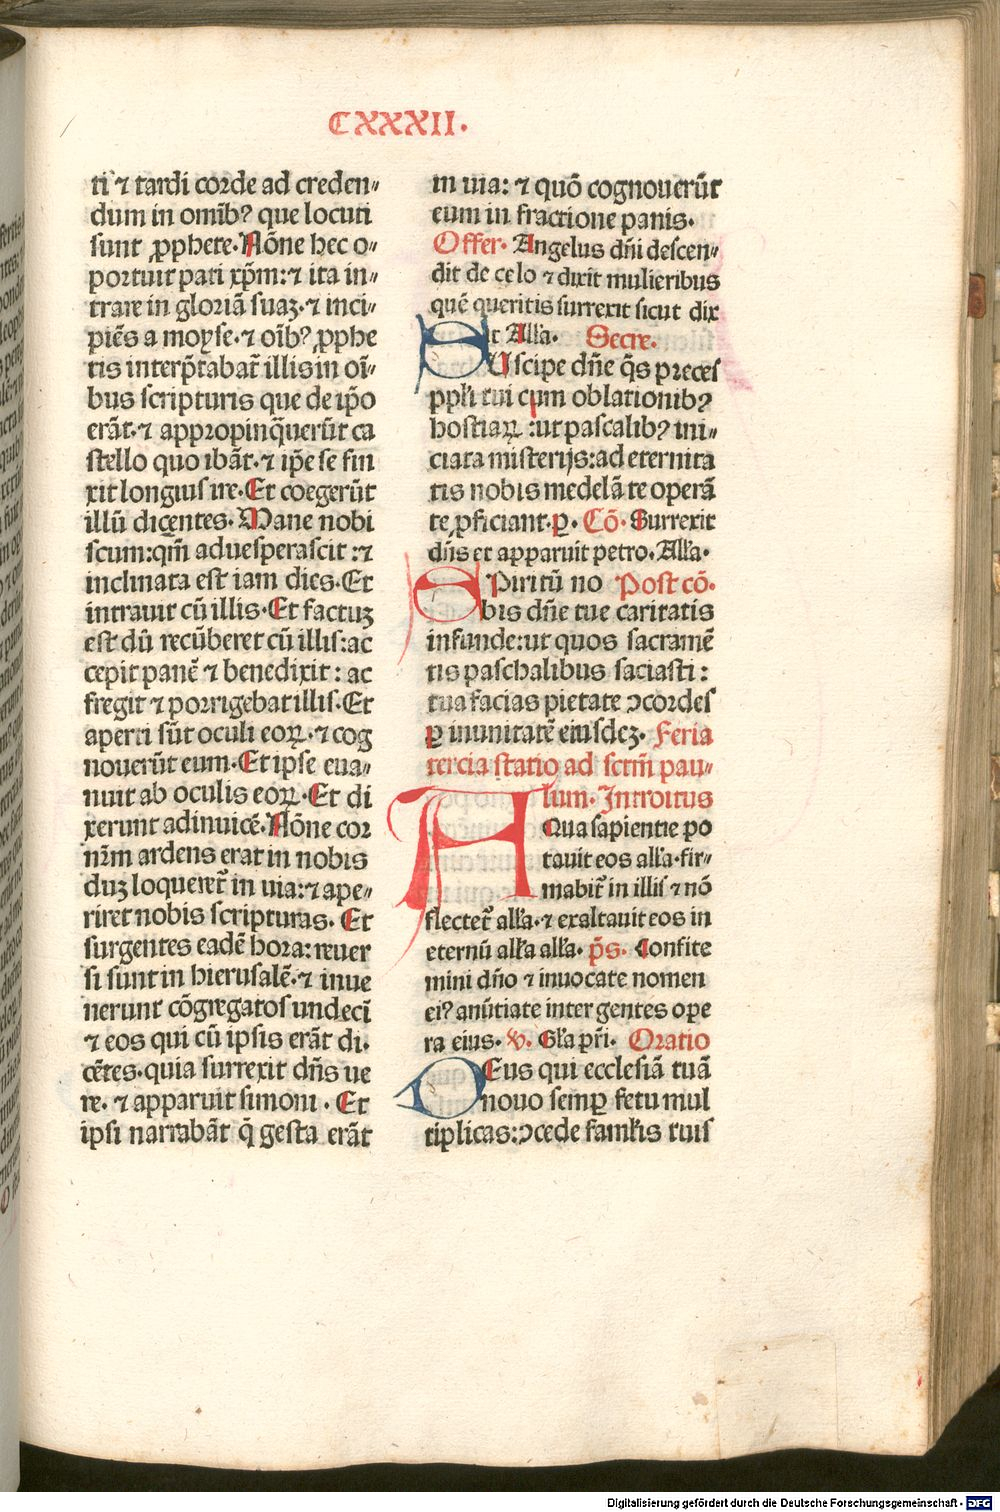 CXXXII.
ti ⁊ tardi corde ad creden⸗
dum in omib⁹ que locuti
sunt ꝓphete. Nõne hec o⸗
portuit pati xp̄m: ⁊ ita in⸗
trare in gloriã suaꝫ. ⁊ inci⸗
piẽs a moyse. ⁊ oĩb⁹ ꝓphe
tis interp̄tabat̃ illis in oĩ⸗
bus scripturis que de ip̄o
erãt. ⁊ appropinq̃uerũt ca
stello quo ibãt. ⁊ ip̄e se fin
xit longius ire. Et coegerũt
illũ dicentes. Mane nobi
scum: qm̃ aduesperascit: ⁊
inclinata est iam dies. Et
intrauit cũ illis. Et factuꝫ
est dũ recũberet cũ illis: ac
cepit panẽ ⁊ benedixit: ac
fregit ⁊ porrigebat illis. Et
aperti sũt oculi eoꝝ. ⁊ cog
nouerũt eum. Et ipse eua⸗
nuit ab oculis eoꝝ. Et di
xerunt adinuicẽ. Nõne cor
nr̃m ardens erat in nobis
duꝫ loqueret̃ in uia: ⁊ ape⸗
riret nobis scripturas. Et
surgentes eadẽ hora: reuer
si sunt in hierusalẽ. ⁊ inue
nerunt cõgregatos undeci
⁊ eos qui cũ ipsis erãt di.
cẽtes. quia surrexit dñs ue
re. ⁊ apparuit simoni. Et
ipsi narrabãt q̃ gesta erãt
in uia: ⁊ quõ cognouerũt
eum in fractione panis.
Offer. Angelus dñi descen⸗
dit de celo ⁊ dixit mulieribus
quẽ queritis surrexit sicut dix
it Alľa. Secre.
SUscipe dñe q̃s preces
ppľi tui cum oblationib⁹
hostiaꝝ: ut pascalib⁹ ini⸗
ciata misterijs: ad eternita
tis nobis medelã te operã
te ꝓficiant. ꝑ. Cõ. Surrexit
dñs et apparuit petro. Alľa.
SPiritũ no Post cõ.
bis dñe tue caritatis
infunde: ut quos sacramẽ
tis paschalibus saciasti:
tua facias pietate ↄcordes
ꝑ inunitatẽ eiusdeꝫ. Feria
tercia statio ad sctm̃ pau⸗
lum. Introitus
AQua sapientie po
tauit eos alľa. fir⸗
mabit̃ in illis ⁊ nõ
flectet̃ alľa. ⁊ exaltauit eos in
eternũ alľa alľa. p̃s. Confite
mini dño ⁊ inuocate nomen
ei⁹ anũtiate inter gentes ope
ra eius. ℣. Gľa pr̃i. Oratio
DEus qui ecclesiã tuã
nouo semꝑ fetu mul
tiplicas: ↄcede famľis tuis
Digitalisierung gefördert durch die Deutsche Forschungsgemeinschaft - DFG